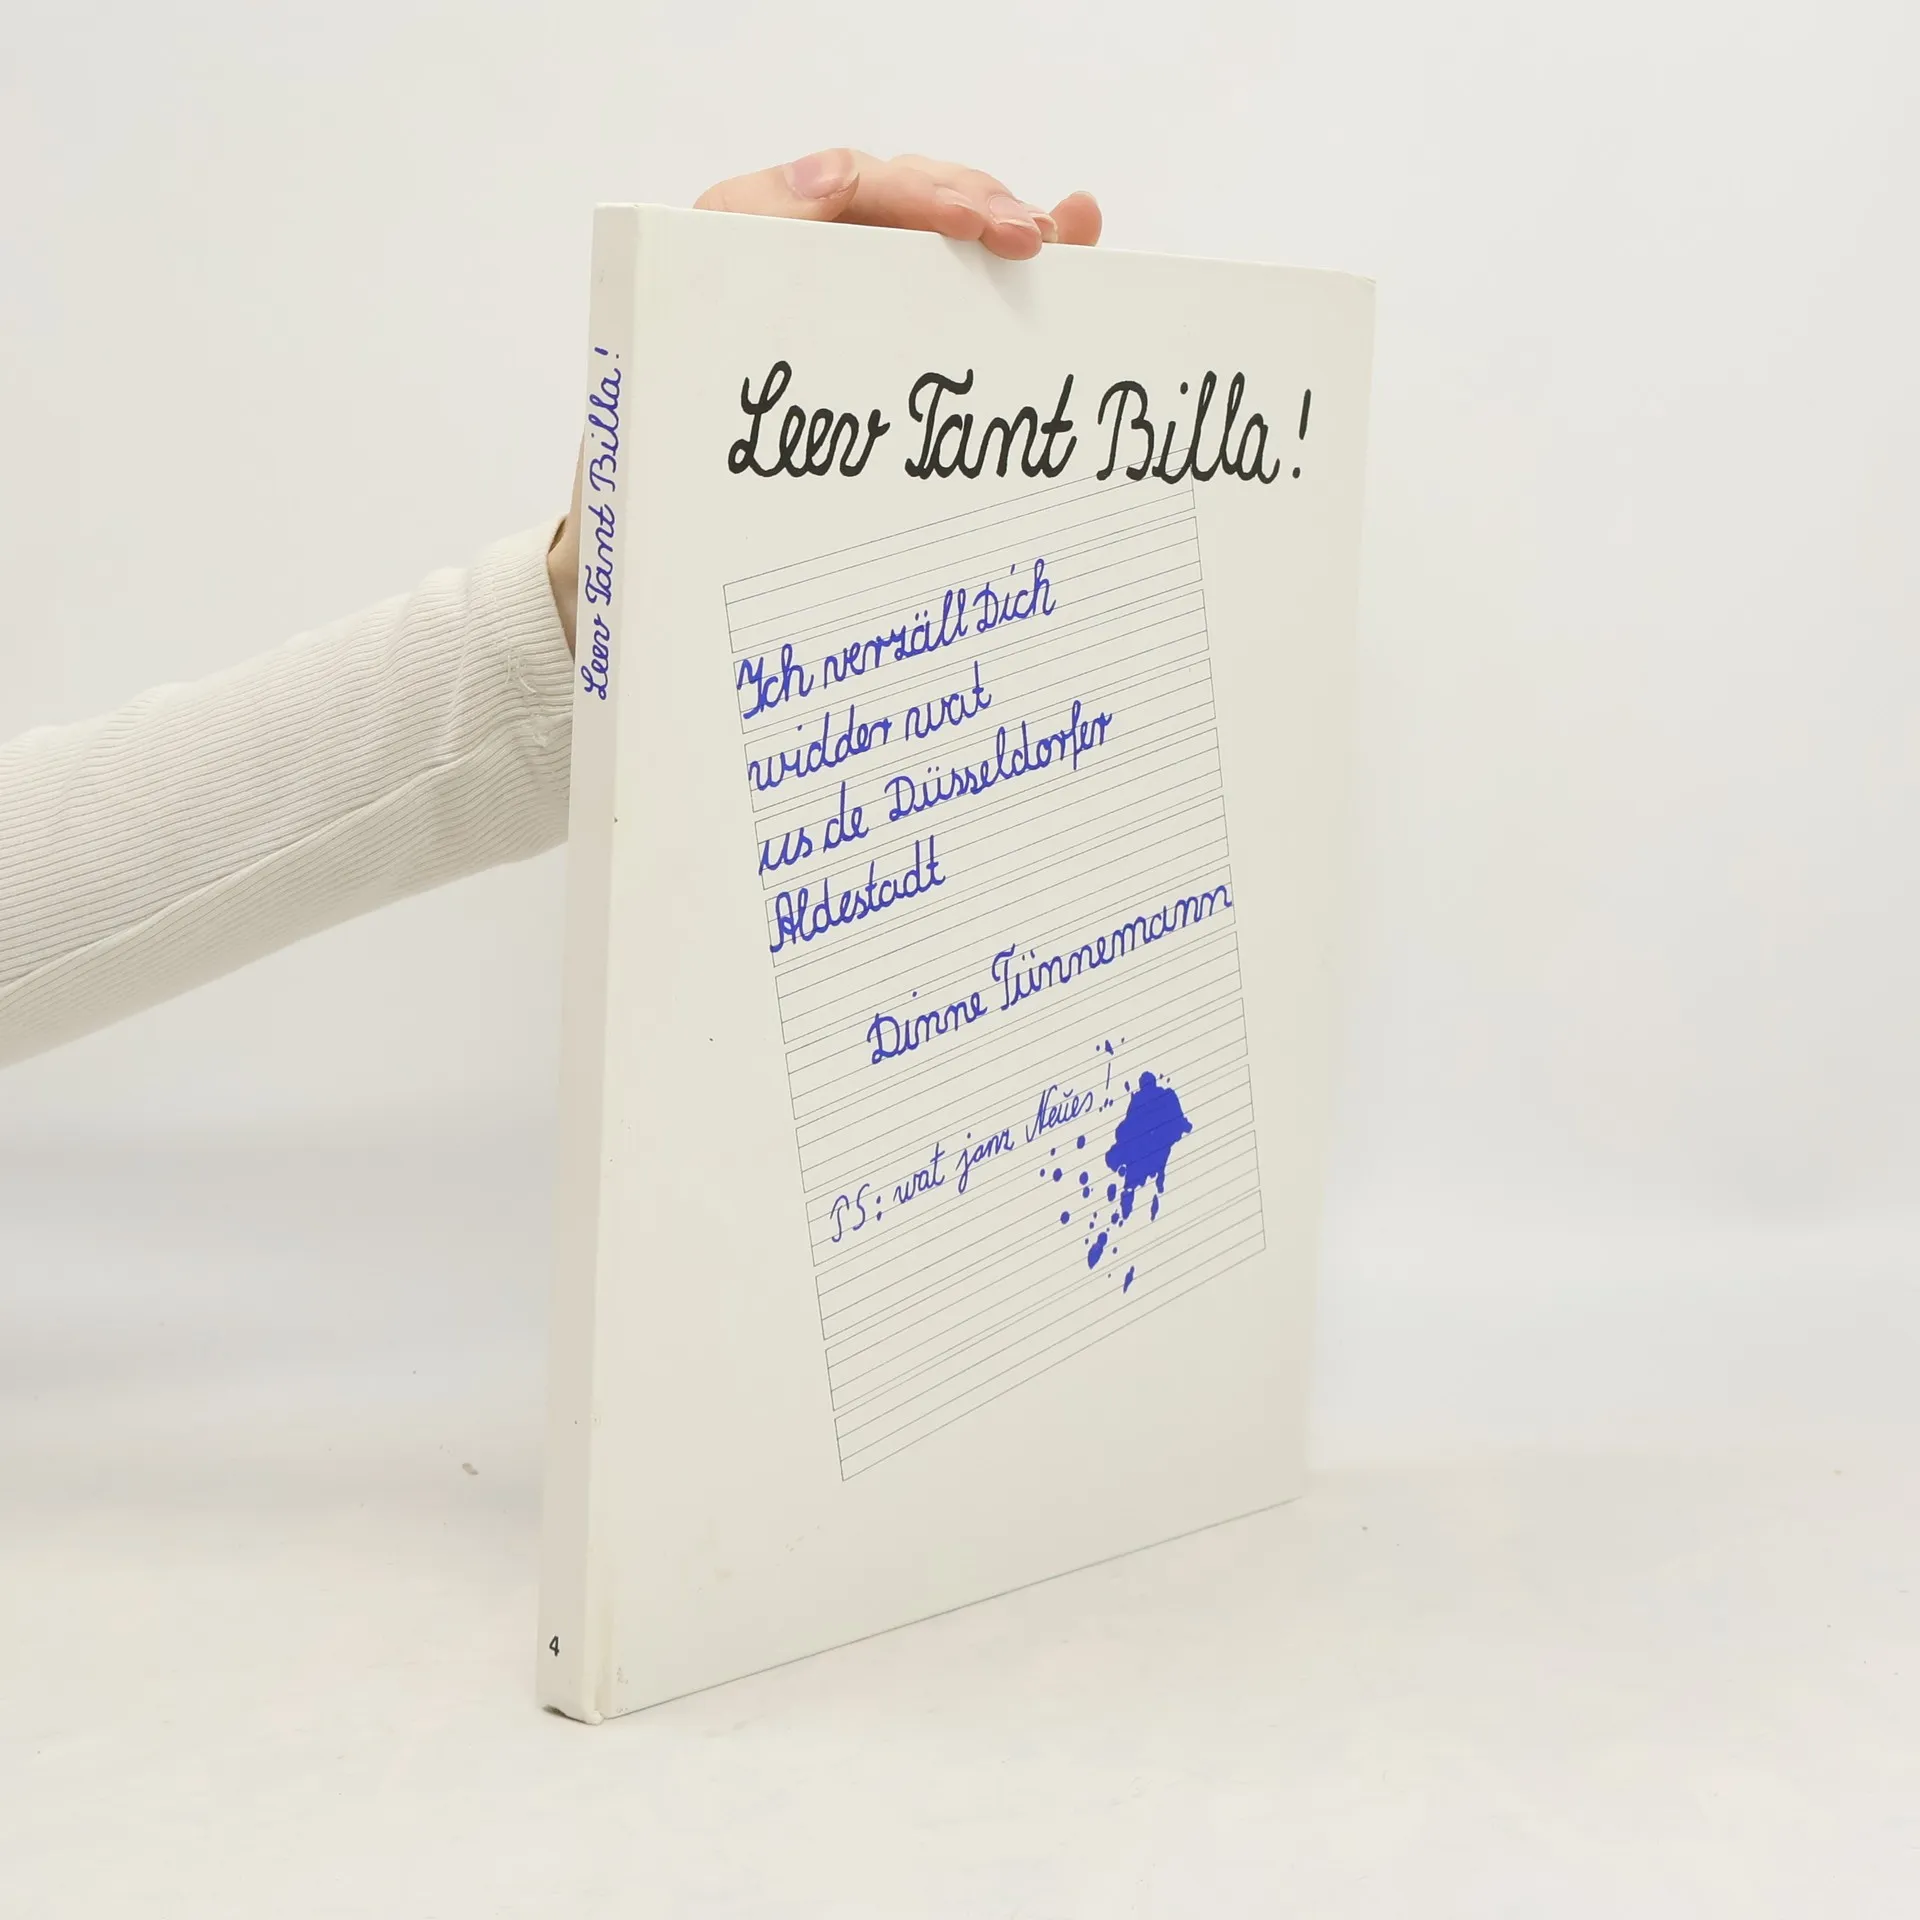 Leev Tant Billa!
Leev Tant Billa!
Ich verzäll Dich
widder wat
us de Düsseldorfer
Aldestadt
Dinne Tünnemann
PS: wat janz Neues!
4